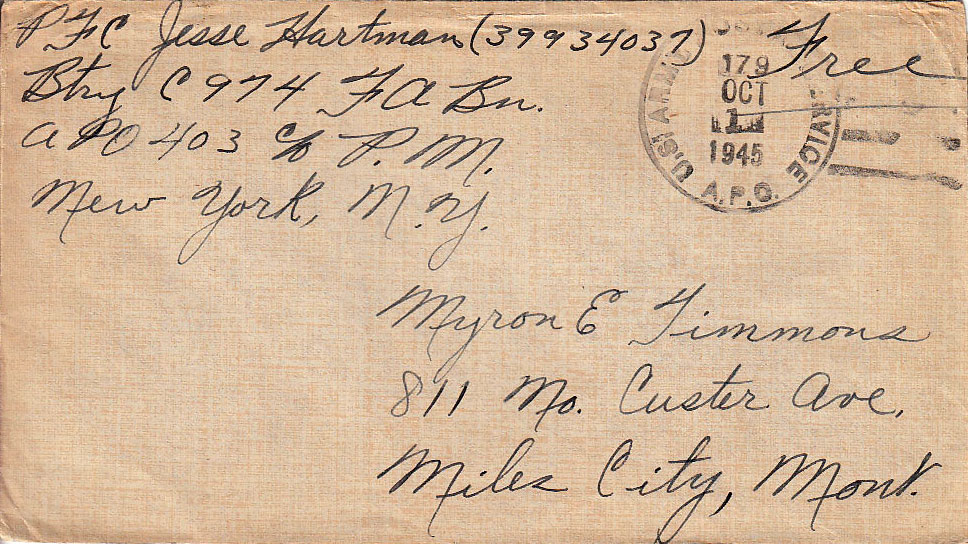 PFC Jesse Hartman (39934037)
Btry C 974 FA Bn.
APO 403 c/o P.M.
New York, N.Y.
Free
U.S. ARMY SERVICE A.P.O.
179
OCT
1
1945
Myron E Timmons
811 No. Custer Ave.
Miles City, Mont.